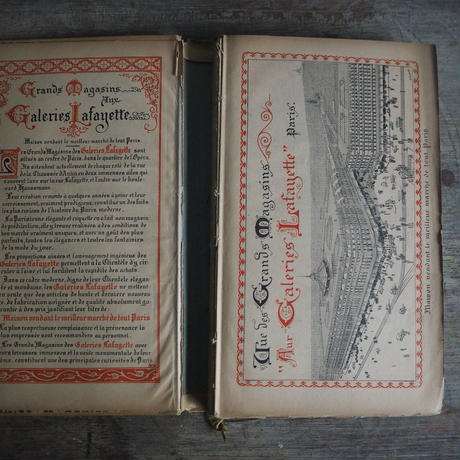 Grands Magasins
Aux
Galeries Lafayette
Maison vendant le meilleur marché de tout Paris
Les Grands Magasins des Galeries Lafayette sont
situés au centre de Paris, dans le quartier de l'Opéra.
Ils s'étendent actuellement de chaque côté de la rue
de la Chaussée d'Antin en deux immenses ailes qui
prennent l'une sur la rue Lafayette et l'autre sur le boule-
vard Haussmann.
Leur création remonte à quelques années à peine et leur
accroissement, vraiment prodigieux, constitue un des faits
les plus curieux de l'histoire du Paris moderne.
La Parisienne élégante et coquette en a fait son magasin
de prédilection, elle y trouve réunies à des conditions de
bon marché vraiment uniques, et avec un goût des plus
parfaits, toutes les élégances et toutes les fantaisies
de la mode du jour.
Les proportions aisées et l'aménagement ingénieux des
Galeries Lafayette permettent à la Clientèle d'y cir-
culer à l'aise et lui facilitent la rapidité des achats.
Dans ce cadre moderne, digne de leur Clientèle élégan-
te et mondaine, les Galeries Lafayette ne mettent
en vente que des articles de haute et dernière nouveau-
té, de fabrication soignée et de qualité absolument ga-
rantie à des prix justifiant leur titre de:
Maison vendant le meilleur marché de tout Paris
La plus respectueuse complaisance et la prévenance la
plus empressée sont recommandées au personnel.
Les Grands Magasins des Galeries Lafayette avec
leurs terrasses immenses et la voûte monumentale de leur
constituent une des principales curiosités de Paris.
Vue des Grands Magasins
"Aux Galeries Lafayette"
Paris.
Maison vendant le meilleur marché de tout Paris